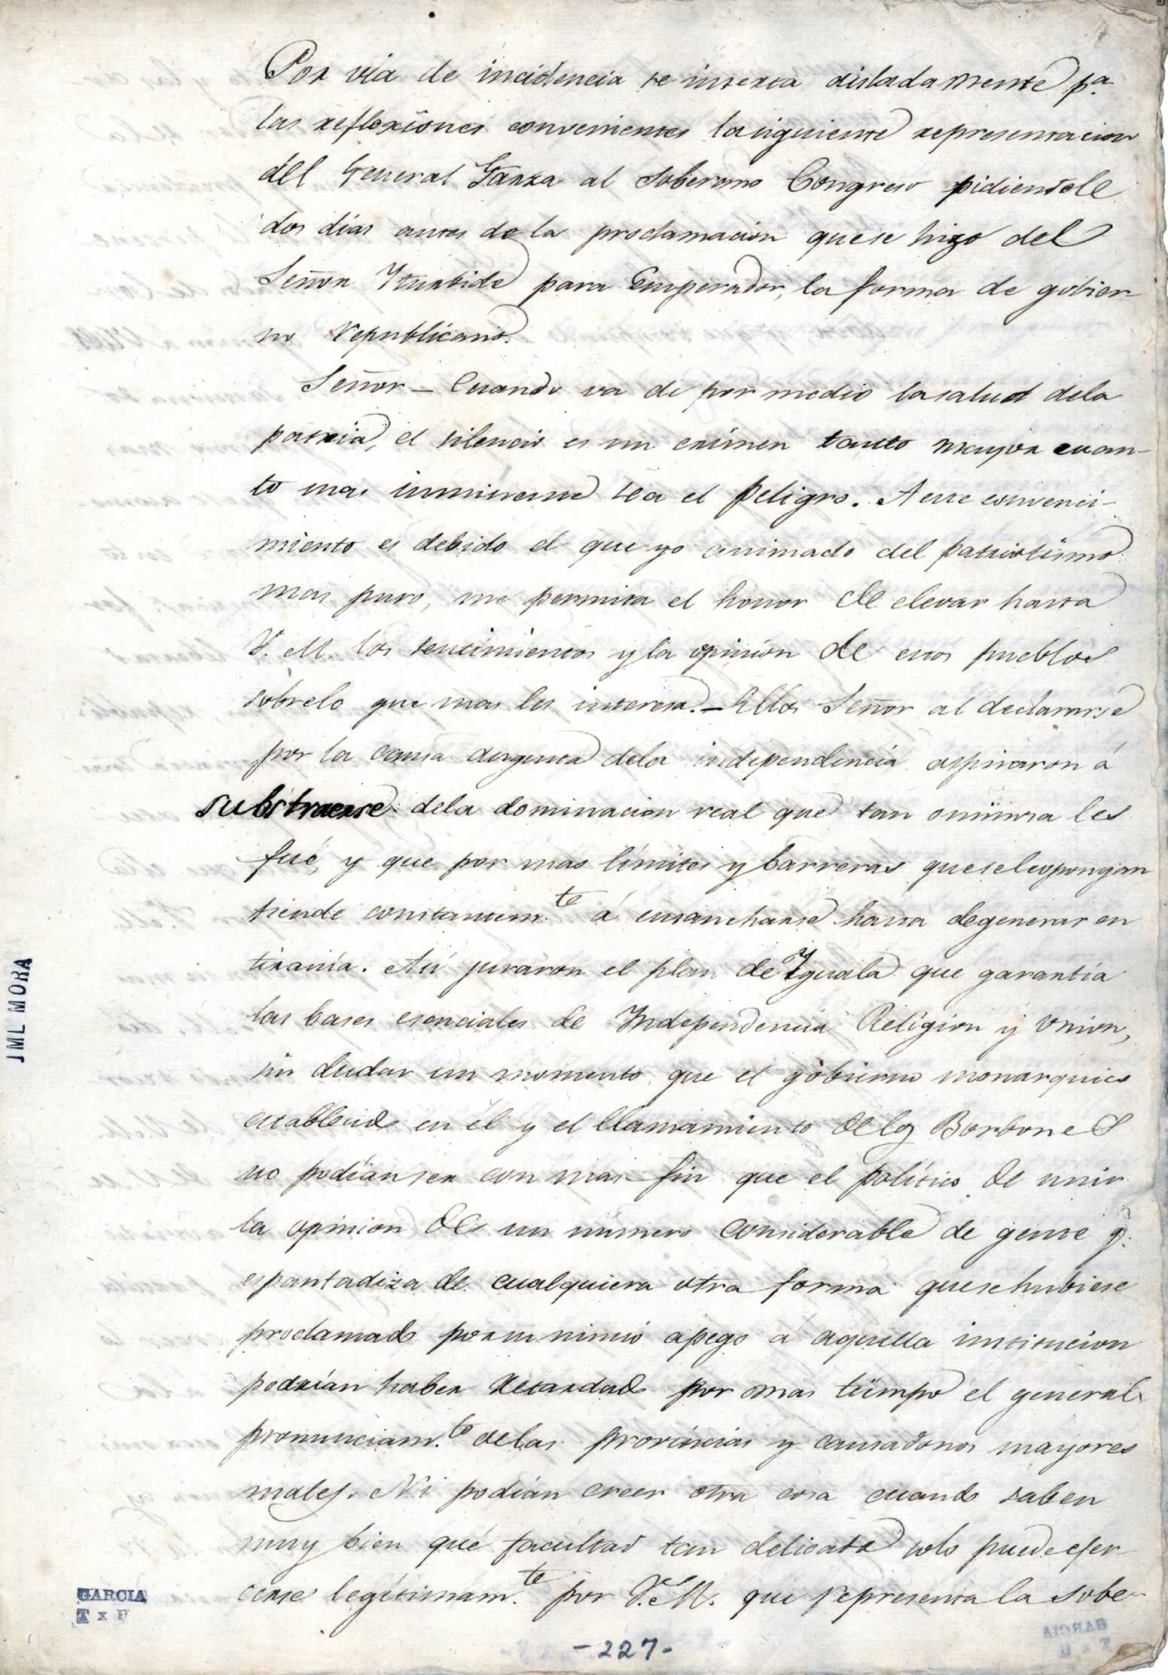 Por via de incidencia se inserta aisladamente pª
las reflexiones convenientes la siguiente representacion
del General Garza al Soberano Congreso pidiendole
dos días antes de la proclamacion que se hizo del
Señor Yturbide para Emperador, la forma de gobier-
no republicano.
Señor – Cuando va de por medio la salud dela
patria, el silencio es un crimen tanto mayor cuan-
to mas inminente sea el peligro. A este convenci-
miento es debido el que yo animado del patriotismo
mas puro, me permita el honor de elevar hasta
V. M. los sentimientos y la opinion de esos pueblos
sobrelo que mas les interesa. – Ellos Señor al declararse
por la causa augusta dela independencia aspiraron á
substraerse dela dominacion real que tan ominosa les
fué, y que por mas límites y barreras que se le opongan
tiende constantemte á ensancharse hasta degenerar en
tiranía. Asi juraron el plan de Yguala que garantía
las bases esenciales de Yndependencia Religion y Union,
sin dudar un momento que el gobierno monarquico
establecido en él y el llamamiento de los Borbones
no podían ser con mas fin que el político de unir
la opinion de un número considerable de gente q.
espantadiza de cualquiera otra forma que se hubiese
proclamado por su nimio apego á aquella institucion
podrían haber retardado por mas tiempo el general
pronunciam.to delas provincias y causadonos mayores
males. Ni podían creer otra cosa cuando saben
muy bien qué facultad tan delicada solo puede ejer-
cerse legítimam.te por V. M. que representa la sobe-
JML MORA
GARCIA
-227-